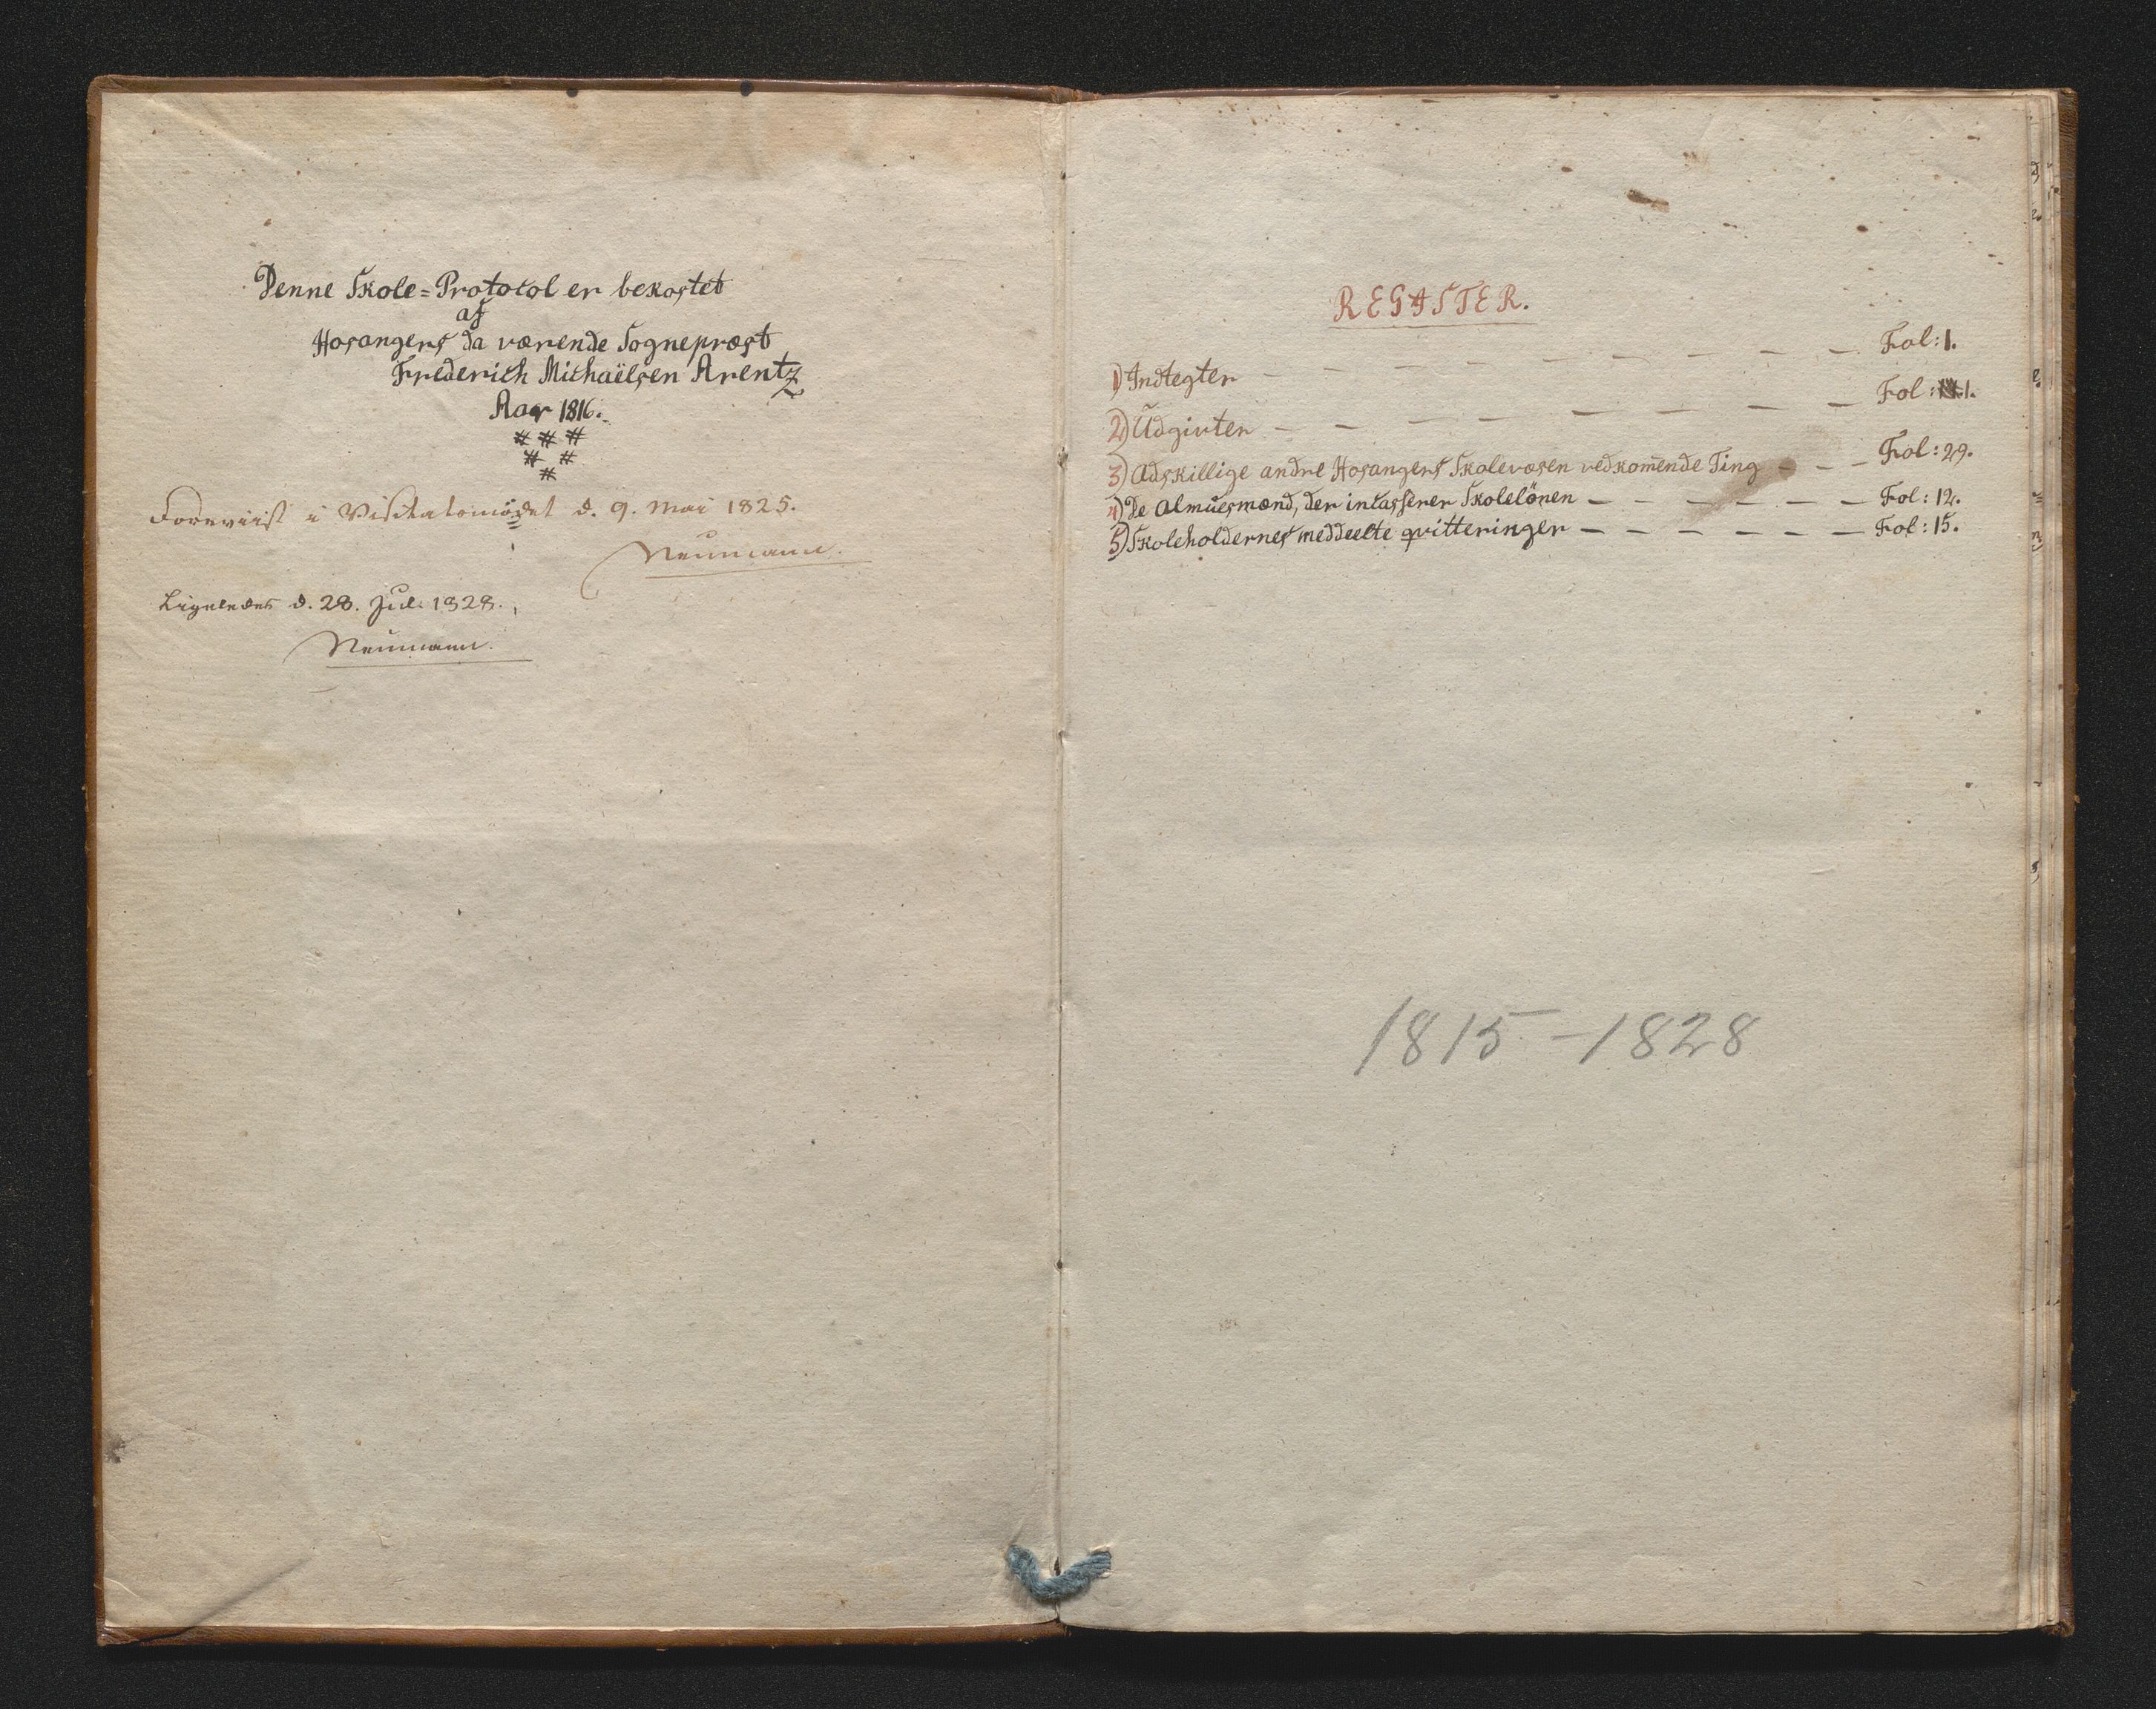 Denne Skole=Protocol er bekostet
af
Hosangers da værende Sognepræst
Frederich Michaëlsen Arentz
Aar 1816.
# # #
# #
#
Foreviist i Visitatsmødet d. 9. Mai 1825.
Neumann.
Ligeledes d. 28. Jul: 1828.
Neumann.
REGISTER.
1) Indtegter — — — — — — — — Fol: 1.
2) Udgivter — — — — — — — — Fol: 1.
3) Adskillige andre Hosangers Skolevæsen vedkom̄ende Ting — — — Fol: 29.
4) De Almuesmænd, der incasserer Skolelönen — — — — — — Fol: 12.
5) Skoleholdernes meddeelte qvitteringer — — — — — — Fol: 15.
1815-1828